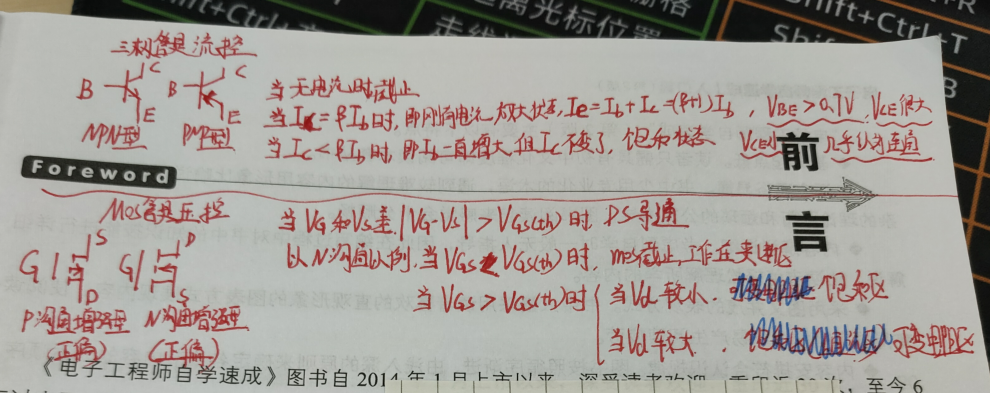 Shift+Ctrl+
走线
离光标位置
栅格
Shift+Ctrl+T
三极管是流控
B C E B C E
NPN型 PNP型
当无电流时截止
当Ic=βIb时,即刚有电流,放大状态,Ie=Ib+Ic=(β+1)Ib,VBE>0.7V,VCE很大
当Ic<βIb时,即Ib一直增大,但Ic不变了,饱和状态 VCE小 几乎认为连通
Foreword
前言
Mos管是压控
G S D G D S
P沟道增强型 N沟道增强型
(正偏) (正偏)
当VG和VS差|VG-VS|>VGS(th)时 DS导通
以N沟道为例,当VGS<VGS(th)时,mos截止,工作在夹断区
当VGS<VGS(th)时
当Vd较小. 饱和区
当Vd较大, 可变电阻区
《电子工程师自学速成》图书自 2014 年 1 月上市以来,深受读者欢迎,重印近 次,至今 6